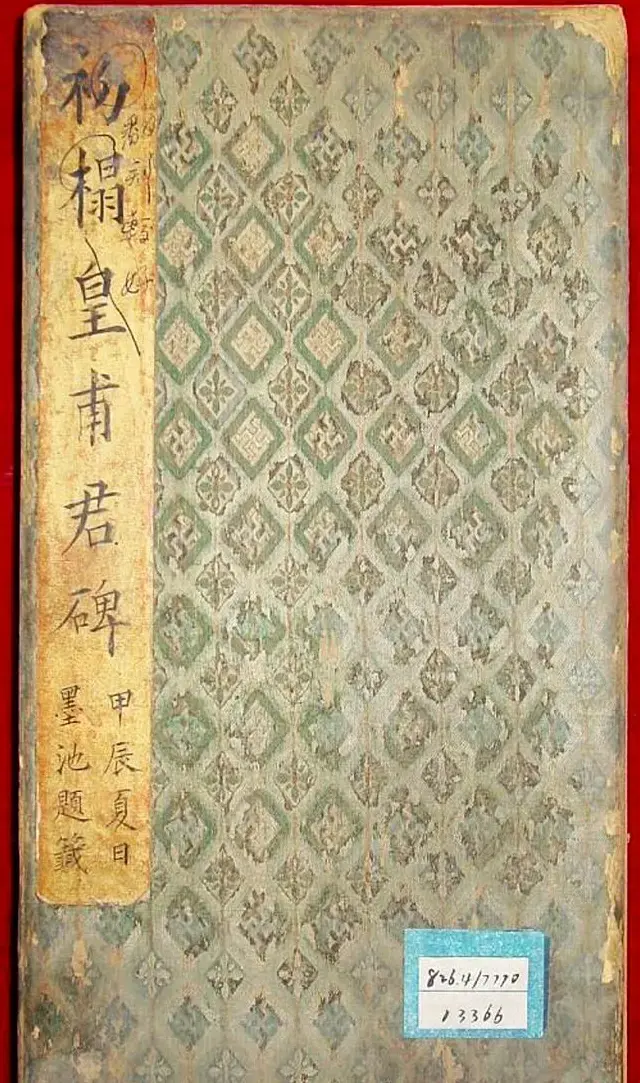 初榻皇甫君碑
甲辰夏日
墨池題籤
826.4/7770
13366